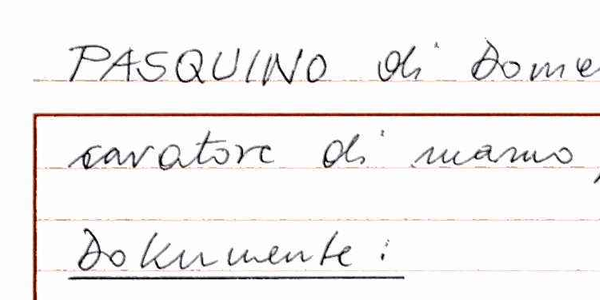 PASQUINO di Dome
cavatore di marmo,
Dokumente: